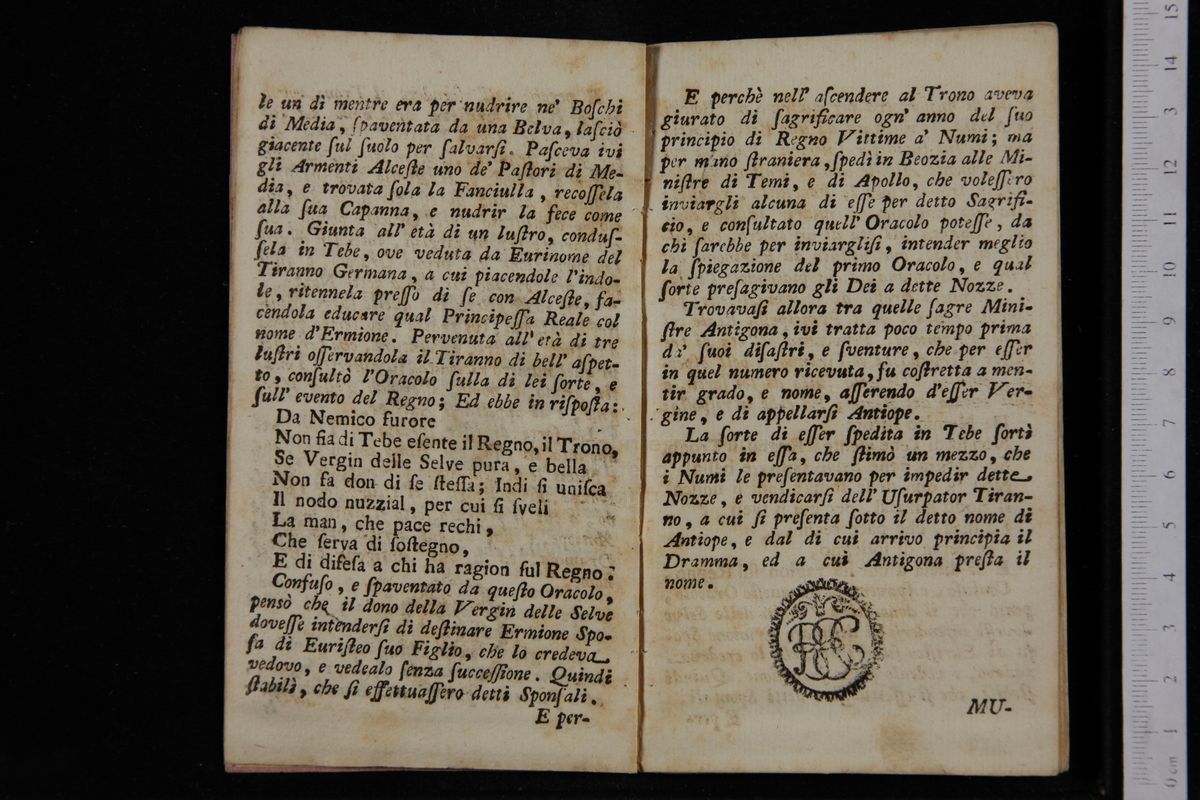 le un dì mentre era per nudrire ne' Boſchi
di Media, ſpaventata da una Belva, laſciò
giacente ſul ſuolo per ſalvarſi. Paſceva ivi
gli Armenti Alceſte uno de' Paſtori di Me-
dia, e trovata ſola la Fanciulla, recoſſela
alla ſua Capanna, e nudrir la fece come
ſua. Giunta all' età di un luſtro, conduſ-
ſela in Tebe, ove veduta da Eurinome del
Tiranno Germana, a cui piacendole l'indo-
le, ritennela preſſo di ſe con Alceſte, fa-
cendola educare qual Principeſſa Reale col
nome d'Ermione. Pervenuta all' età di tre
luſtri oſſervandola il Tiranno di bell' aſpet-
to, conſultò l'Oracolo ſulla di lei ſorte, e
ſull' evento del Regno; Ed ebbe in riſpoſta:
Da Nemico furore
Non fia di Tebe eſente il Regno, il Trono,
Se Vergin delle Selve pura, e bella
Non fa don di ſe ſteſſa; Indi ſi uniſca
Il nodo nuzzial, per cui ſi ſveli
La man, che pace rechi,
Che ſerva di ſoſtegno,
E di difeſa a chi ha ragion ſul Regno.
Confuſo, e ſpaventato da queſto Oracolo,
pensò che il dono della Vergin delle Selve
doveſſe intenderſi di deſtinare Ermione Spo-
ſa di Euriſteo ſuo Figlio, che lo credeva
vedovo, e vedealo ſenza ſucceſſione. Quindi
ſtabilì, che ſi effettuaſſero detti Sponſali.
E per-
E perchè nell' aſcendere al Trono aveva
giurato di ſagrificare ogn' anno del ſuo
principio di Regno Vittime a' Numi; ma
per mano ſtraniera, ſpedì in Beozia alle Mi-
niſtre di Temi, e di Apollo, che voleſſero
inviargli alcuna di eſſe per detto Sagrifi-
cio, e conſultato quell' Oracolo poteſſe, da
chi ſarebbe per inviargliſi, intender meglio
la ſpiegazione del primo Oracolo, e qual
ſorte preſagivano gli Dei a dette Nozze.
Trovavaſi allora tra quelle ſagre Mini-
ſtre Antigona, ivi tratta poco tempo prima
de' ſuoi diſaſtri, e ſventure, che per eſſer
in quel numero ricevuta, fu coſtretta a men-
tir grado, e nome, aſſerendo d'eſſer Ver-
gine, e di appellarſi Antiope.
La ſorte di eſſer ſpedita in Tebe ſortì
appunto in eſſa, che ſtimò un mezzo, che
i Numi le preſentavano per impedir dette
Nozze, e vendicarſi dell' Uſurpator Tiran-
no, a cui ſi preſenta ſotto il detto nome di
Antiope, e dal di cui arrivo principia il
Dramma, ed a cui Antigona preſta il
nome.
MU-
0 cm 1 2 3 4 5 6 7 8 9 10 11 12 13 14 15